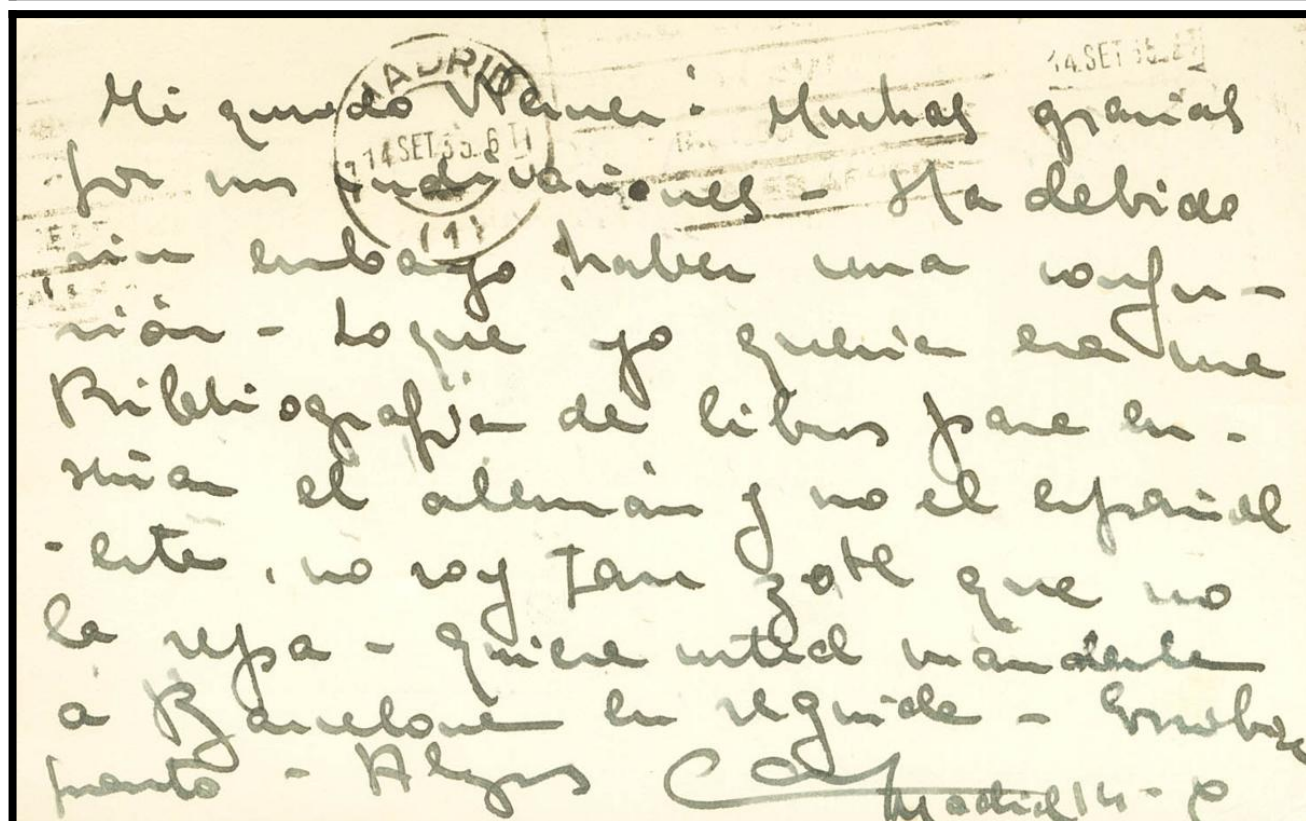 MADRID
14 SET 35. 6 T
(1)
14 SET 35.
Mi querido Werner: Muchas gracias
por sus indicaciones - Ha debido
sin embargo haber una confu-
sión - Lo que yo queria era una
Bibliografia de libros para en-
señar el alemán y no el español
- este, no soy tan zote que no
lo sepa - Quiere usted mandarla
a Barcelona en seguida - Escribire
pronto - Abzos
Madrid 14 -